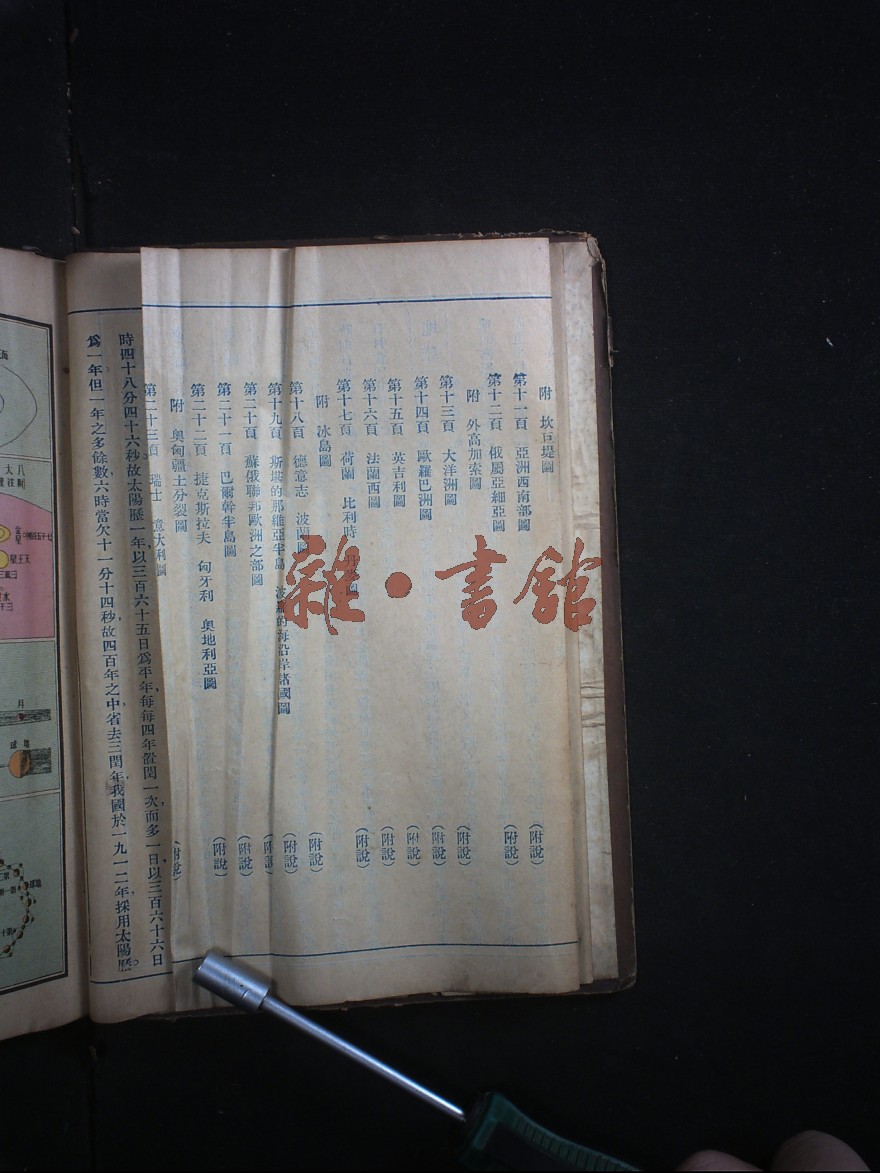 附 坎巨堤圖
第十一頁 亞洲西南部圖 (附說)
第十二頁 俄屬亞細亞圖 (附說)
附 外高加索圖
第十三頁 大洋洲圖 (附說)
第十四頁 歐羅巴洲圖 (附說)
第十五頁 英吉利圖 (附說)
第十六頁 法蘭西圖 (附說)
第十七頁 荷蘭 比利時 (附說)
附 冰島圖
第十八頁 德意志 波蘭圖 (附說)
第十九頁 斯堪的那維亞半島 波羅的海沿岸諸國圖 (附說)
第二十頁 蘇俄聯邦歐洲之部圖 (附說)
第二十一頁 巴爾幹半島圖 (附說)
第二十二頁 捷克斯拉夫 匈牙利 奧地利亞圖 (附說)
附 奧匈疆土分裂圖
第二十三頁 瑞士 意大利圖 (附說)
時四十八分四十六秒故太陽歷一年,以三百六十五日爲平年,每每四年置閏一次,而多一日以三百六十六日
爲一年但一年之多餘數六時當欠十一分十四秒,故四百年之中省去三閏年,我國於一九一二年,採用太陽歷。
雜·書館
月
地球